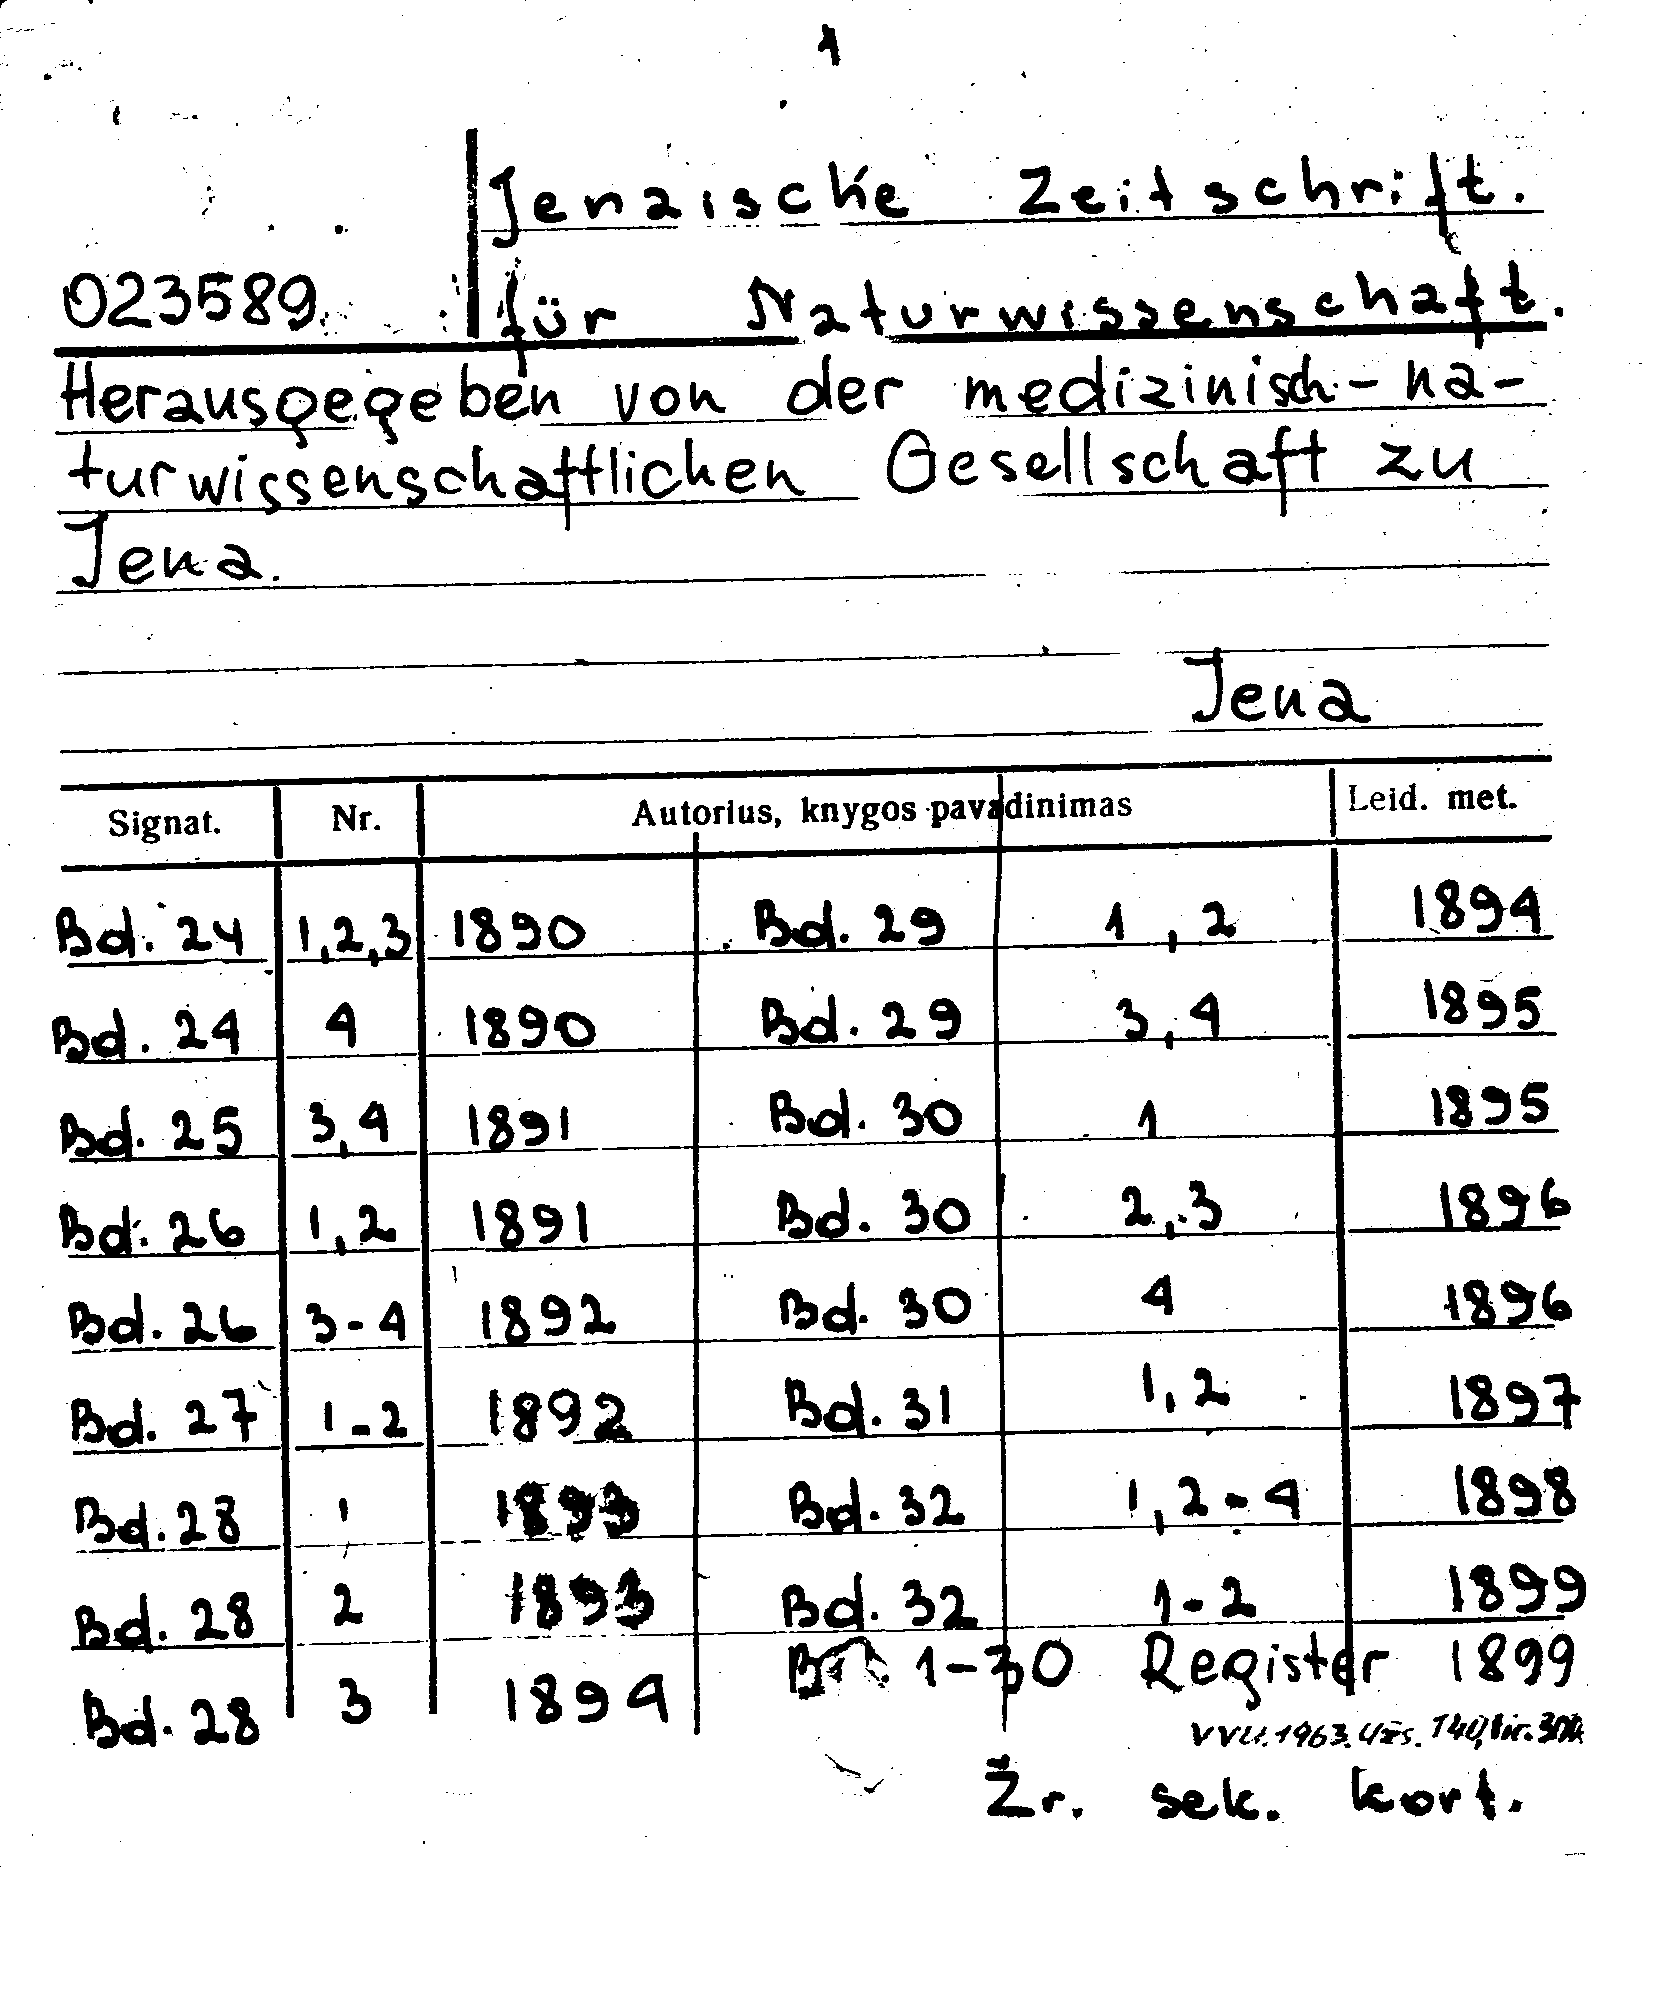 1
Jenaische Zeitschrift.
023589 für Naturwissenschaft.
Herausgegeben von der medizinisch-na-
turwissenschaftlichen Gesellschaft zu
Jena.
Jena
Signat. Nr. Autorius, knygos pavadinimas Leid. met.
Bd. 24 1,2,3 1890 Bd. 29 1,2 1894
Bd. 24 4 1890 Bd. 29 3,4 1895
Bd. 25 3,4 1891 Bd. 30 1 1895
Bd. 26 1,2 1891 Bd. 30 2,3 1896
Bd. 26 3-4 1892 Bd. 30 4 1896
Bd. 27 1-2 1892 Bd. 31 1,2 1897
Bd. 28 1 1893 Bd. 32 1,2-4 1898
Bd. 28 2 1893 Bd. 32 1-2 1899
Bd. 28 3 1894 1-30 Register 1899
VVU. 1963. Užs. 140, tir.
Žr. sek. kort.